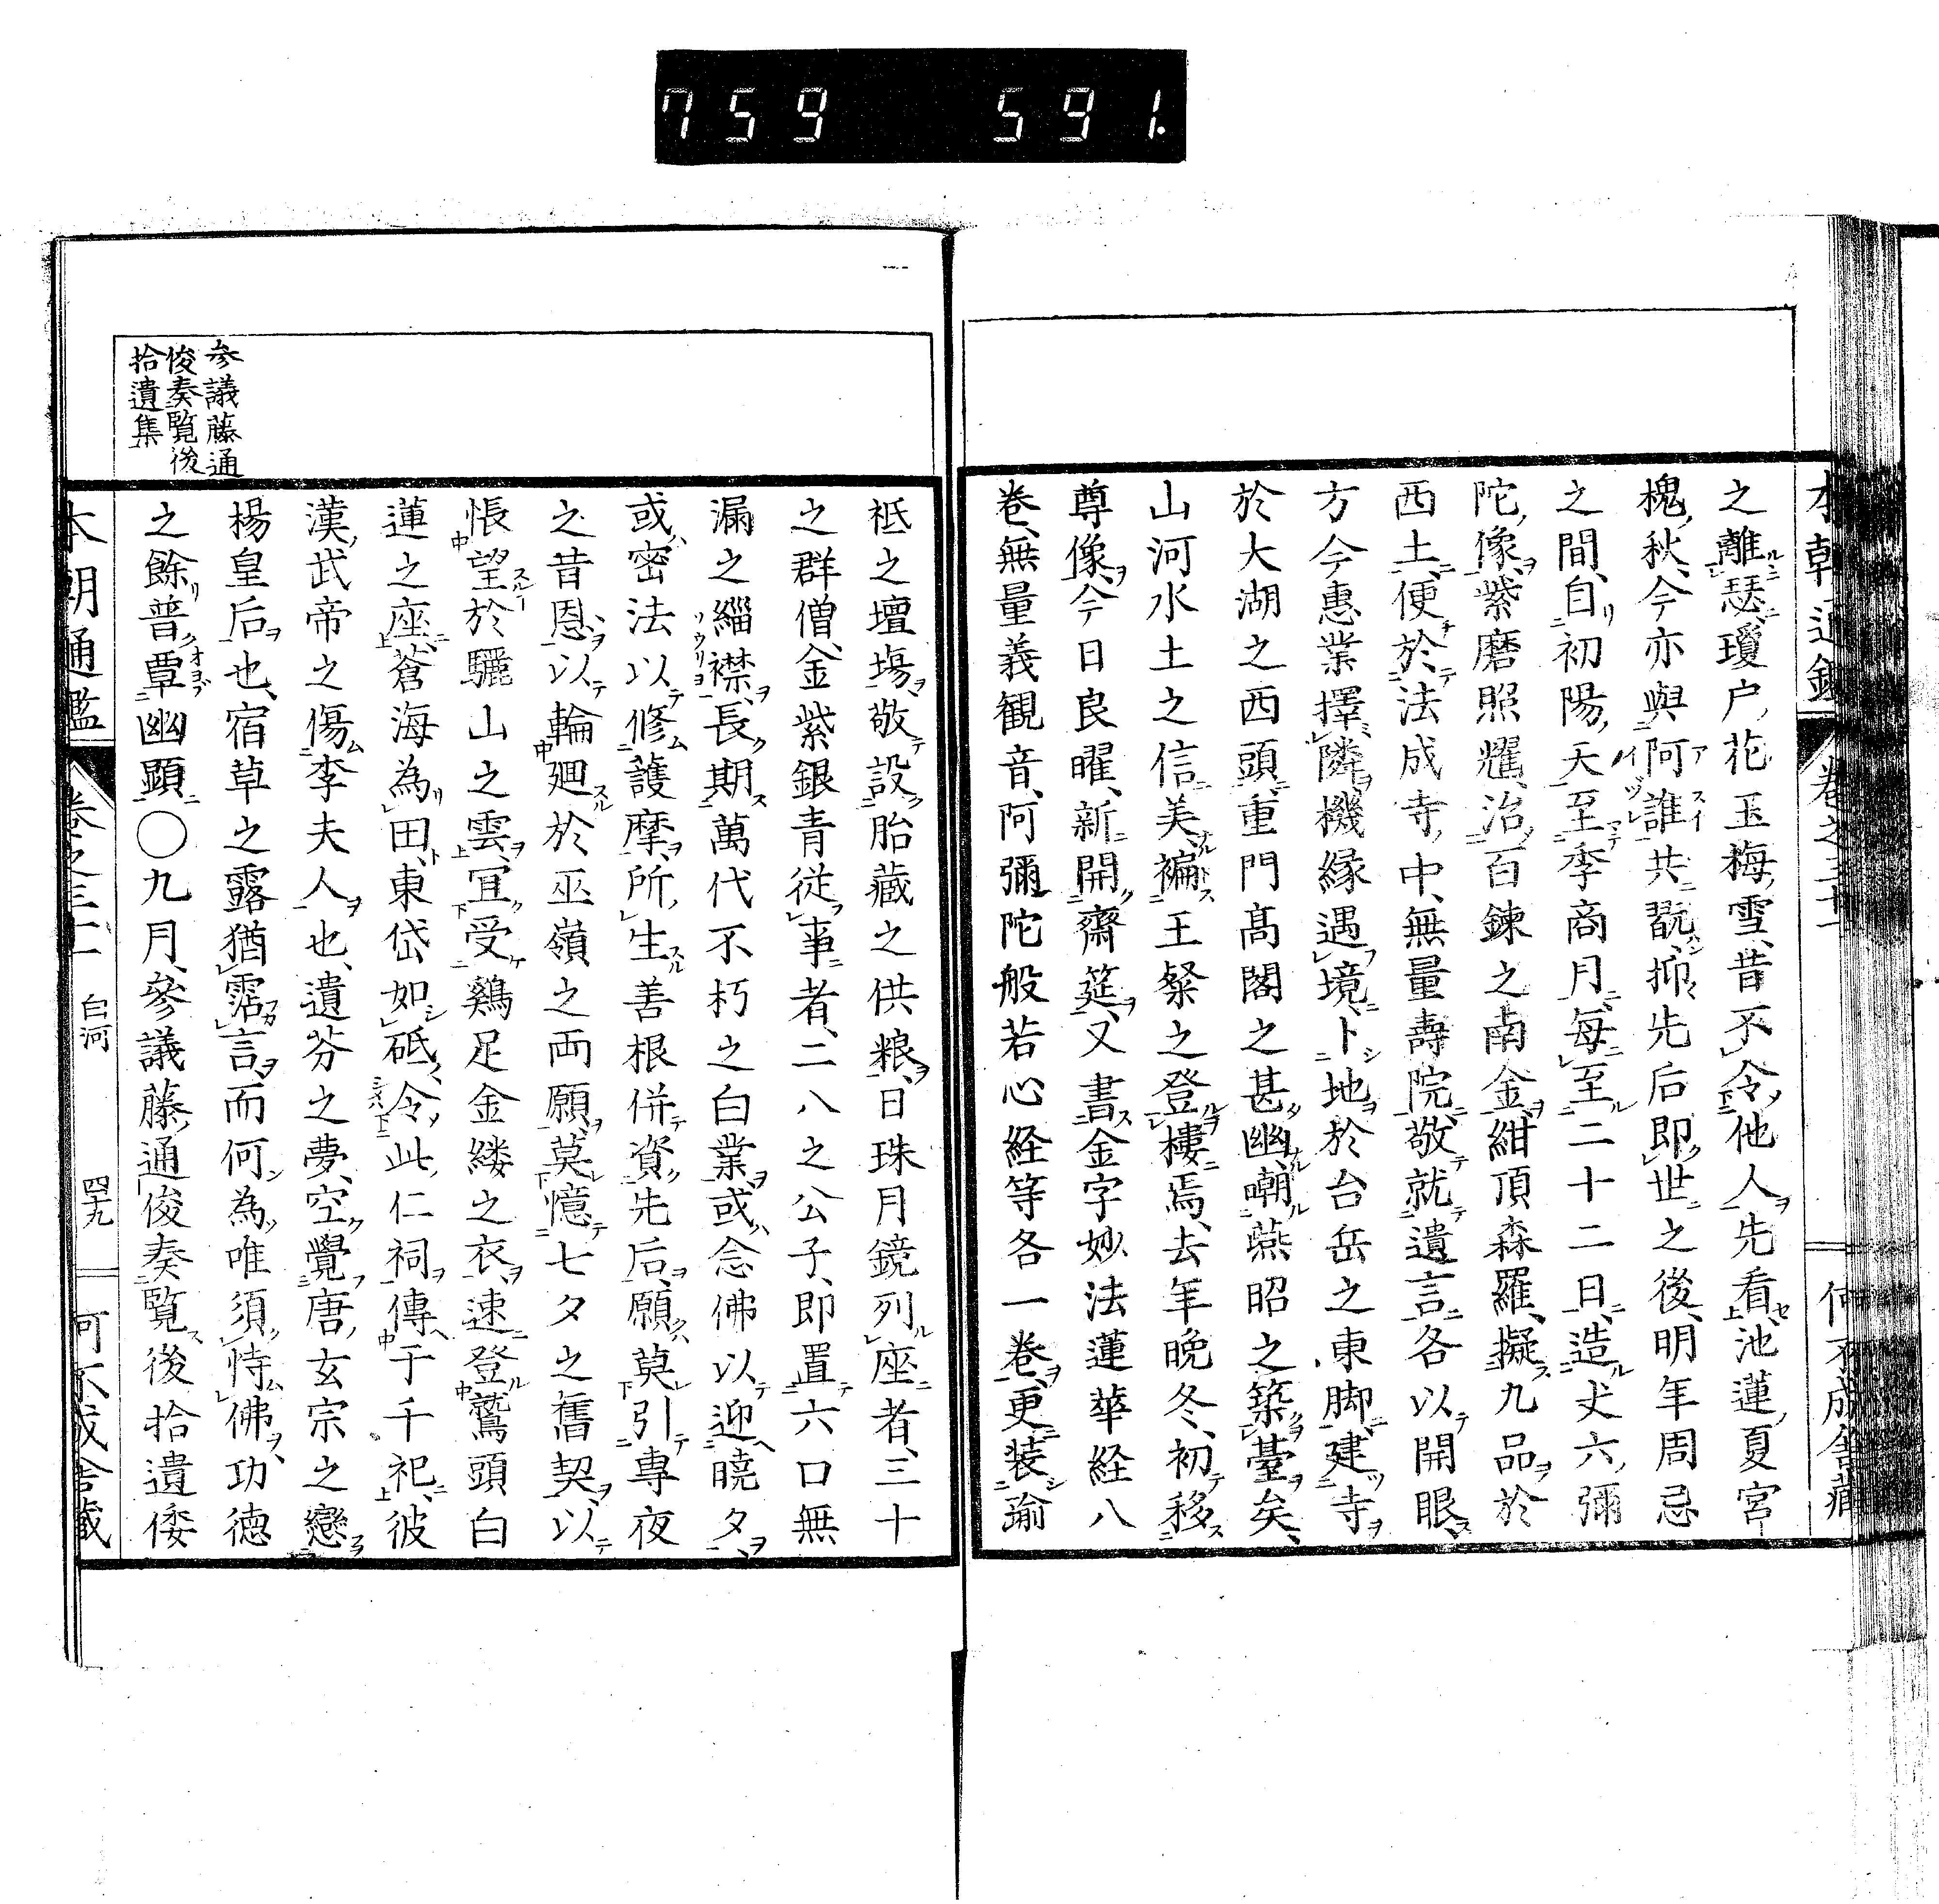 759 591.
之離瑟瓊户花玉梅雪昔不令他人先看池蓮夏宮
槐秋今亦與阿誰共翫抑先后即世之後明年周忌
之間自初陽天至季商月每至二十二日造丈六彌
陀像紫磨照耀冶百鍊之南金紺頂森羅擬九品於
西土便於法成寺中無量壽院敬就遺言各以開眼
方今惠業擇隣機縁遇境卜地於台岳之東脚建寺
於大湖之西頭重門髙閣之甚幽嘲燕昭之築臺矣
山河水土之信美褊王粲之登樓焉去年晚冬初移
尊像今日良曜新開齋筵又書金字妙法蓮華経八
巻無量義観音阿彌陀般若心経等各一巻更装瑜
参議藤通
俊奏覧後
拾遺集
祗之壇塲敬設胎藏之供粮日珠月鏡列座者三十
之群僧金紫銀青従事者二八之公子即置六口無
漏之緇襟長期萬代不朽之白業或念佛以迎曉夕
或密法以修護摩所生善根併資先后願莫引專夜
之昔恩以輪廻於巫嶺之両願莫憶七夕之舊契以
悵望於驪山之雲宜受鷄足金縷之衣速登鷲頭白
蓮之座蒼海為田東岱如砥令此仁祠傳于千祀彼
漢武帝之傷李夫人也遺芬之夢空覺唐玄宗之戀
楊皇后也宿草之露猶霑言而何為唯須恃佛功德
之餘普覃幽顕〇九月參議藤通俊奏覧後拾遺倭
本朝通鑑 巻之三十一 白河 四十九 何不成舎藏